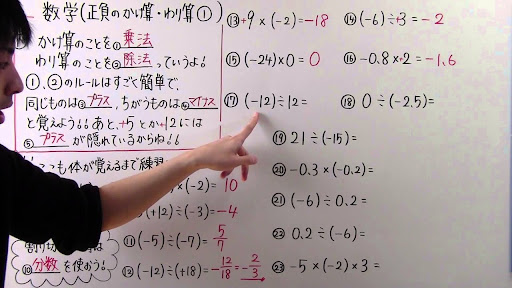 数学(正負のかけ算・わり算①)
かけ算のことを①乗法
わり算のことを②除法っていうよ!
①、②のルールはすごく簡単で、
同じものは③プラス、ちがうものは④マイナス
と覚えよう!!あと、+5とか+12には
⑤プラスが隠れているからね!!
も体が覚えるまで練習
×(-2)= 10
(+12)÷(-3)=-4
⑪ (-5)÷(-7)= 5/7
⑫ (-12)÷(+18)=-12/18=-2/3
⑩分数を使おう!
⑬+9×(-2)=-18
⑭ (-6)÷+3=-2
⑮ (-24)×0= 0
⑯ -0.8×+2=-1.6
⑰ (-12)÷12=
⑱ 0÷(-2.5)=
⑲ 21÷(-15)=
⑳ -0.3×(-0.2)=
㉑ (-6)÷0.2=
㉒ 0.2÷(-6)=
㉓ -5×(-2)×3=